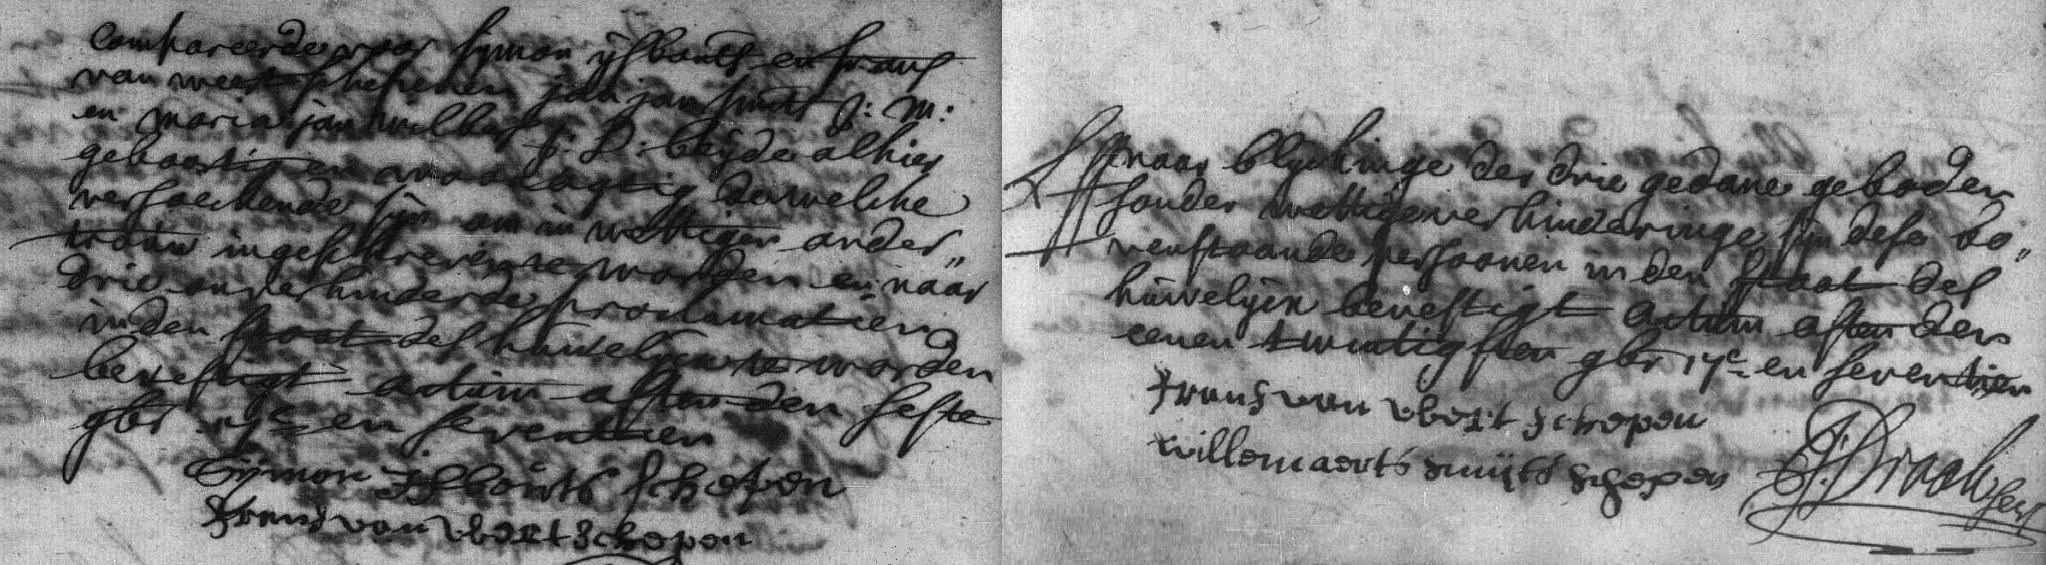 Compareerde voor Sijmon ijsbouts en Frans
van weert schepenen Jan Jan Smits J: M:
en maria Jan Melbers J: D: beijde alhier
geboortig en woonagtig dewelcke
versoeckende sijn om in wettigen onder„
trouw ingeschreven te worden en naar
drie onverhinderde proclamatien
in den staat des huwelijcx te worden
bevestigt actum Asten den seste
9br 17c en seventien
Sijmon Isbouts schepen
Frans van weert schepen
naar blijckinge der drie gedane geboden
sonder wettige verhinderinge sijn dese bo„
venstaande persoonen in den staat des
huwelijcx bevestigt actum Asten den
eenen twintigsten 9br 17c en seventien
Frans van weert schepen
willem aerts smijts schepen